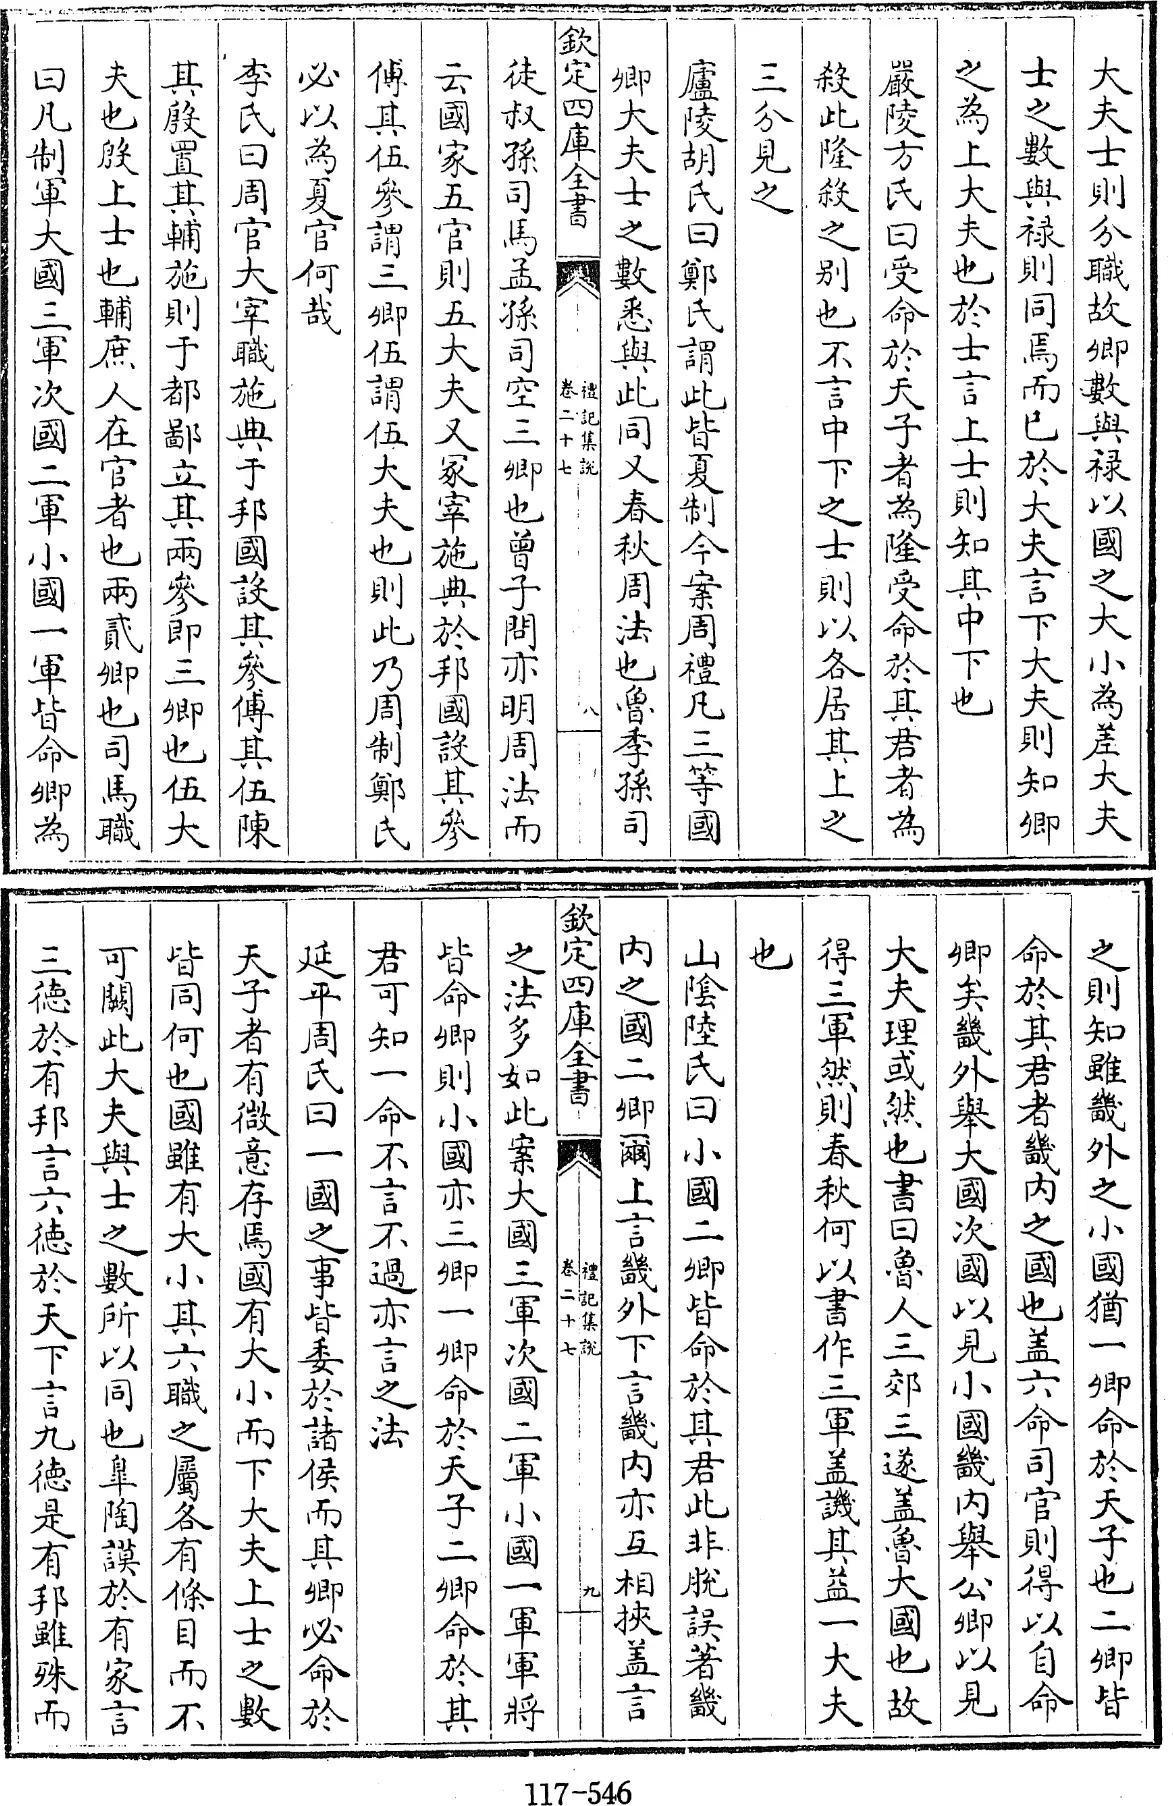 大夫士則分職故卿數與禄以國之大小為差大夫
士之數與禄則同焉而已於大夫言下大夫則知卿
之為上大夫也於士言上士則知其中下也
嚴陵方氏曰受命於天子者為隆受命於其君者為
殺此隆殺之别也不言中下之士則以各居其上之
三分見之
廬陵胡氏曰鄭氏謂此皆夏制今案周禮凡三等國
卿大夫士之數悉與此同又春秋周法也魯季孫司
欽定四庫全書
禮記集説
卷二十七
八
徒叔孫司馬孟孫司空三卿也曾子問亦明周法而
云國家五官則五大夫又冢宰施典於邦國設其參
傅其伍參謂三卿伍謂伍大夫也則此乃周制鄭氏
必以為夏官何哉
李氏曰周官大宰職施典于邦國設其參傅其伍陳
其殷置其輔施則于都鄙立其兩參即三卿也伍大
夫也殷上士也輔庶人在官者也兩貳卿也司馬職
曰凡制軍大國三軍次國二軍小國一軍皆命卿為
之則知雖畿外之小國猶一卿命於天子也二卿皆
命於其君者畿内之國也盖六命司官則得以自命
卿矣畿外舉大國次國以見小國畿内舉公卿以見
大夫理或然也書曰魯人三郊三遂盖魯大國也故
得三軍然則春秋何以書作三軍盖譏其益一大夫
也
山陰陸氏曰小國二卿皆命於其君此非脱誤著畿
内之國二卿爾上言畿外下言畿内亦互相挾盖言
欽定四庫全書
禮記集説
卷二十七
九
之法多如此案大國三軍次國二軍小國一軍軍將
皆命卿則小國亦三卿一卿命於天子二卿命於其
君可知一命不言不過亦言之法
延平周氏曰一國之事皆委於諸侯而其卿必命於
天子者有微意存焉國有大小而下大夫上士之數
皆同何也國雖有大小其六職之屬各有條目而不
可闕此大夫與士之數所以同也臯陶謨於有家言
三徳於有邦言六徳於天下言九徳是有邦雖殊而
117-546